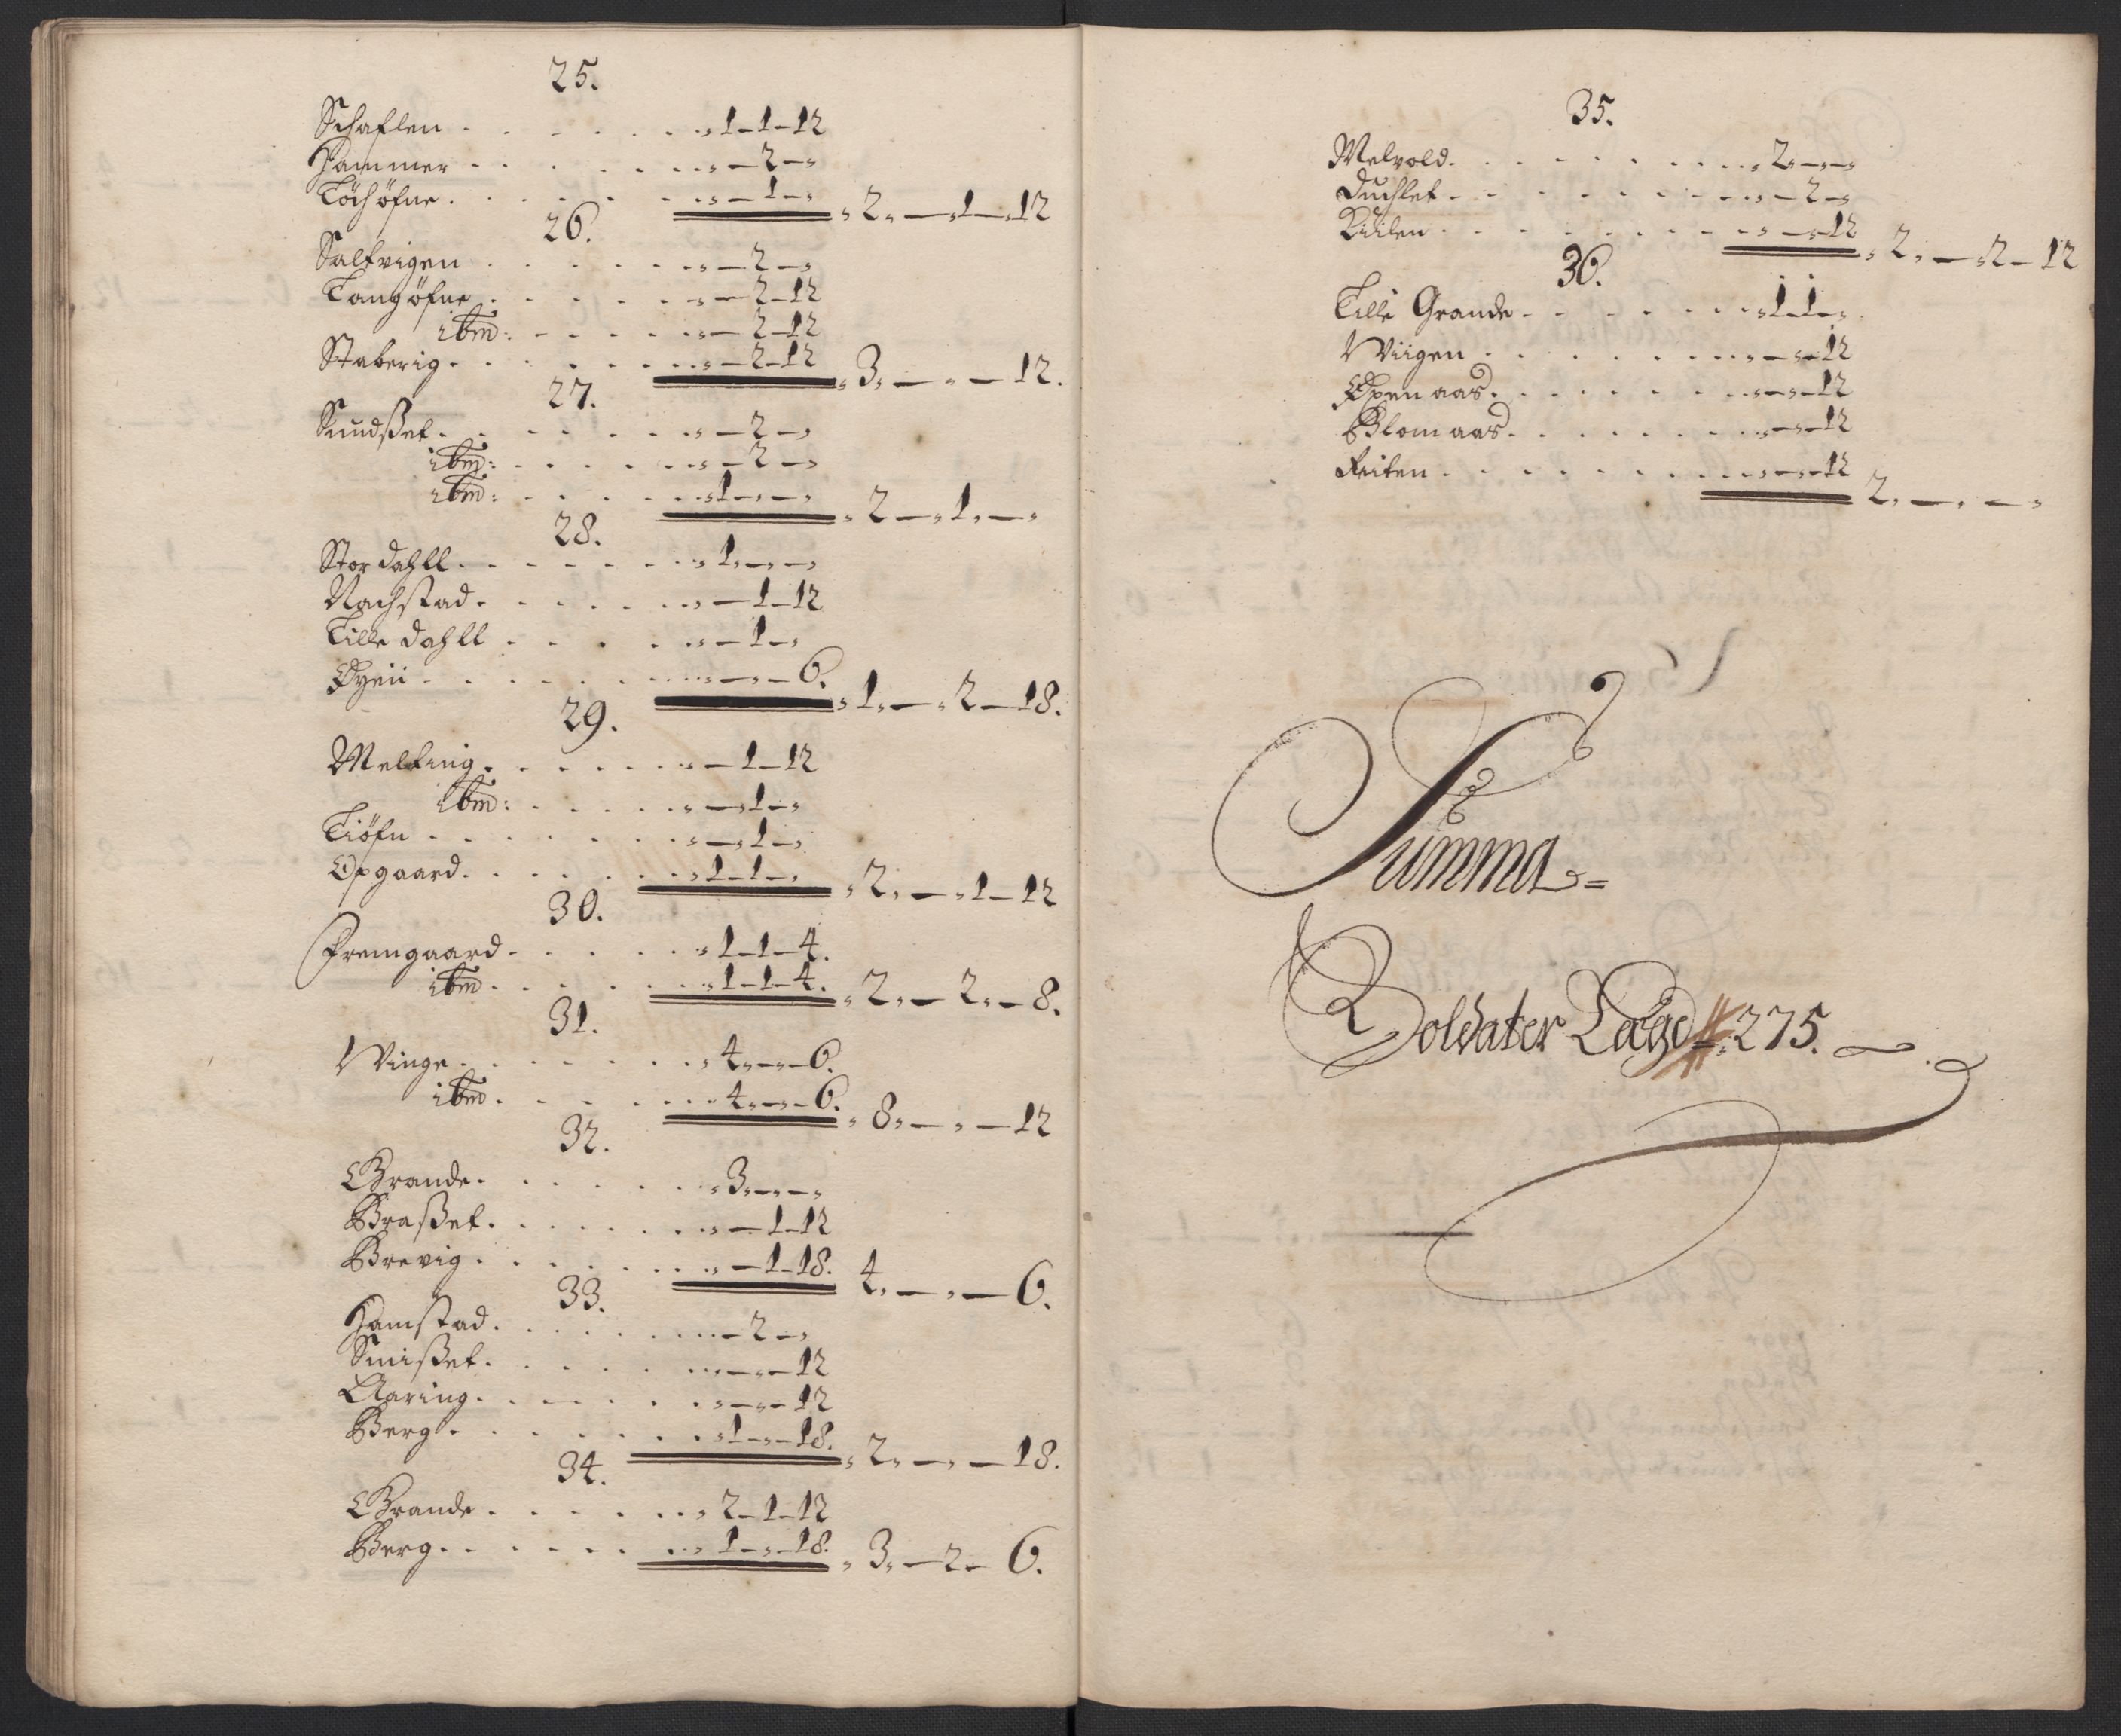 25.
Schaflen . . . . . . . „ 1 – 1 – 12
Hammer . . . . . . „ – 2 – „
Töchöfne . . . . . . „ – 1 – „ „ 2 „ – 1 – 12
26.
Saltvigen . . . . . . „ – 2 – „
Tangöfne . . . . . . „ – 2 – 12
ibm: . . . . . „ – 2 – 12
Staberig . . . . . . „ – 2 – 12 „ 3 „ – „ – 12.
27.
Sundßet . . . . . . „ – 2 – „
ibm: . . . . . „ – 2 – „
ibm: . . . . . „ 1 – „ – „ „ 2 – „ 1 „ – „
28.
Stor dahll . . . . . . „ 1 – „ – „
Nachstad . . . . . . „ – 1 – 12
Lille dahll . . . . . „ – 1 – „
Öyen . . . . . . „ – „ – 6. „ 1 „ – „ 2 – 18.
29.
Melting . . . . . . „ – 1 – 12
ibm: . . . . . „ – 1 – „
Tiöfn . . . . . . „ – 1 – „
Opgaard . . . . . . „ 1 – 1 – „ „ 2 „ – „ 1 – 12
30.
Fremgaard . . . . . „ 1 – 1 – 4.
ibm . . . . . „ 1 – 1 – 4. „ 2 „ – 2 „ – 8.
31.
Winge . . . . . . „ 4 „ – „ – 6.
ibm . . . . . „ 4 „ – „ – 6. „ 8 „ – „ – 12
32.
Grande . . . . . . „ 3 „ – „ – „
Braßet . . . . . . „ – 1 – 12
Brevig . . . . . . „ – 1 – 18. 4 „ – „ – 6.
33.
Hamstad . . . . . . „ – 2 – „
Smißet . . . . . . „ – „ – 12
Aaring . . . . . . „ – „ – 12
Berg . . . . . . „ 1 – „ – 18. „ 2 „ – „ – 18.
34.
Grande . . . . . . „ 2 – 1 – 12
Berg . . . . . . „ 1 – „ – 18. „ 3 „ – 2 – 6.
35.
Melvold . . . . . . „ 2 „ – „ – „
Duchlet . . . . . . „ – 2 – „
Kiilen . . . . . . „ – „ – 12 „ 2 „ – „ 2 – 12
36.
Lille Grande . . . . . „ 1 – 1 – „
Wiigen . . . . . . „ – „ – 12
Öxenaas . . . . . . „ – „ – 12
Blomaas . . . . . . „ – „ – 12
Reiten . . . . . . „ – „ – 12 2 „ – „ – „
Summa =
Soldater Lægd = 275.